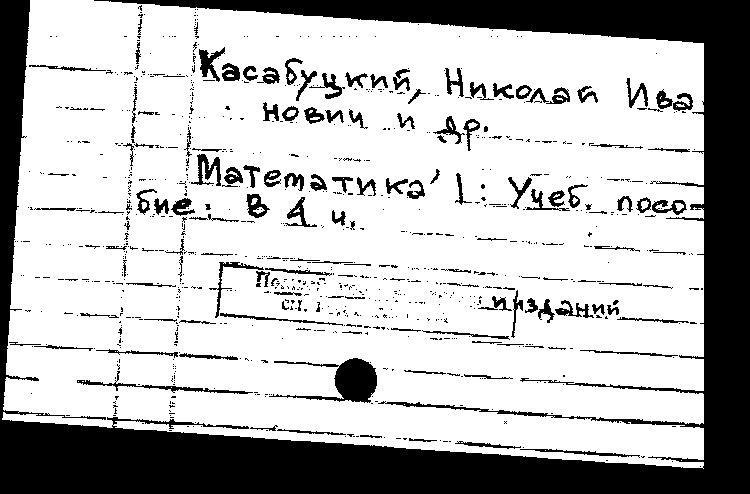 Касабуцкий, Николай Ива
нович и др.
Математика' 1: Учеб. посо-
бие: В 4 ч.
см.
и изданий